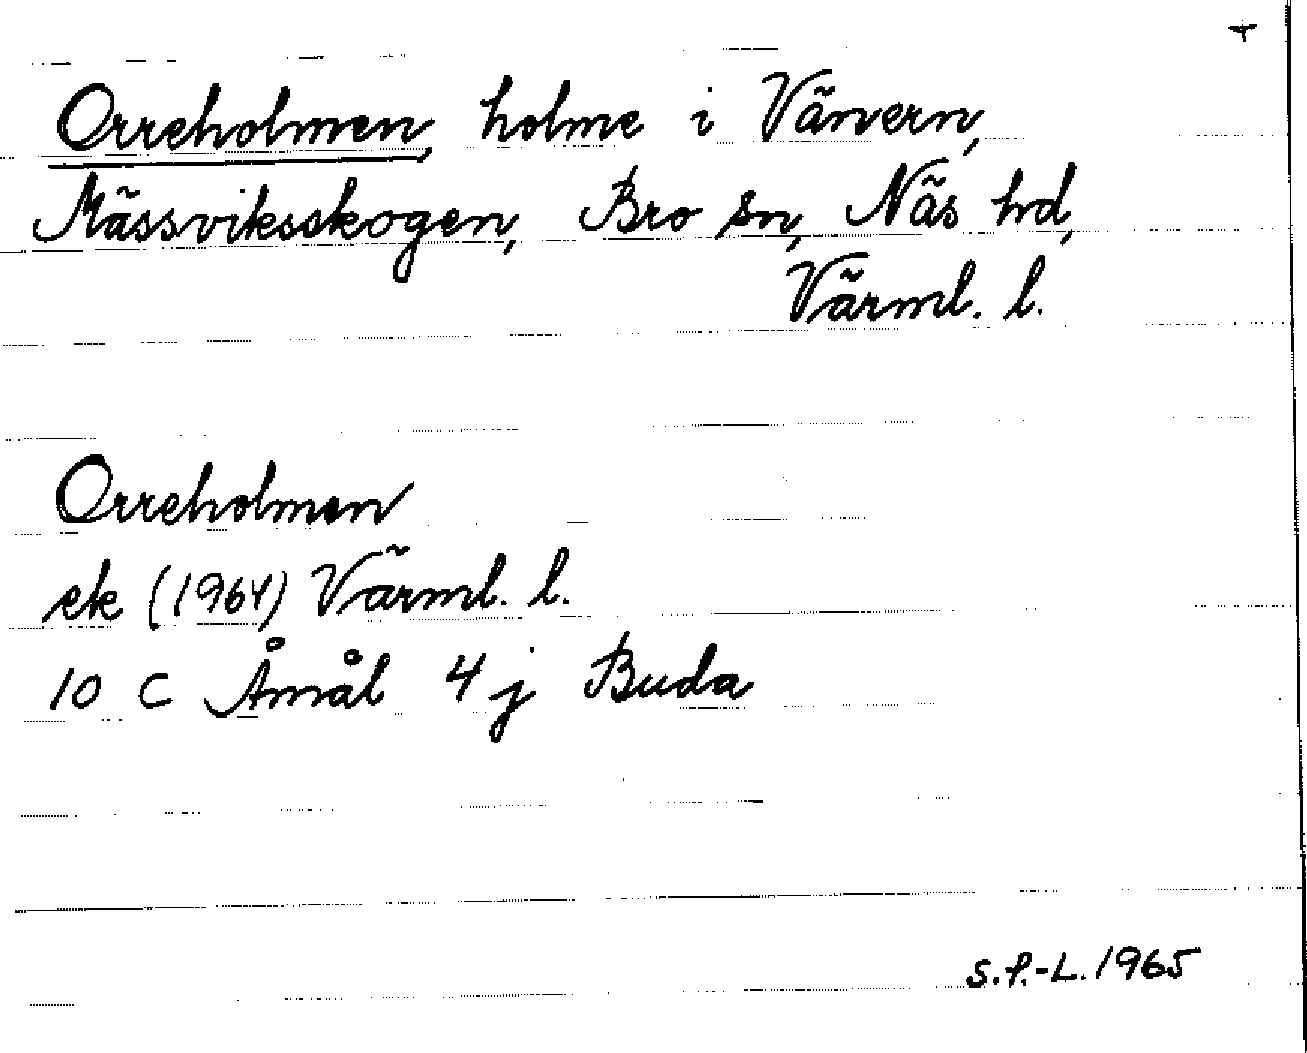 Orreholmen, holme i Vänern,
Mässviksskogen, Bro sn, Näs hd,
Värml. l.
Orreholmen
ek (1964) Värml. l.
10 C Åmål 4 j Buda
S.P.-L. 1965